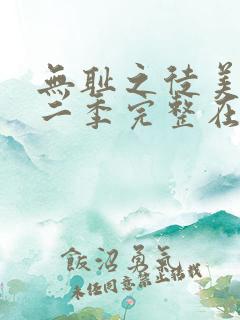 無耻之徒美
二季完整在
飯沼勇氣
未任同意禁止转载